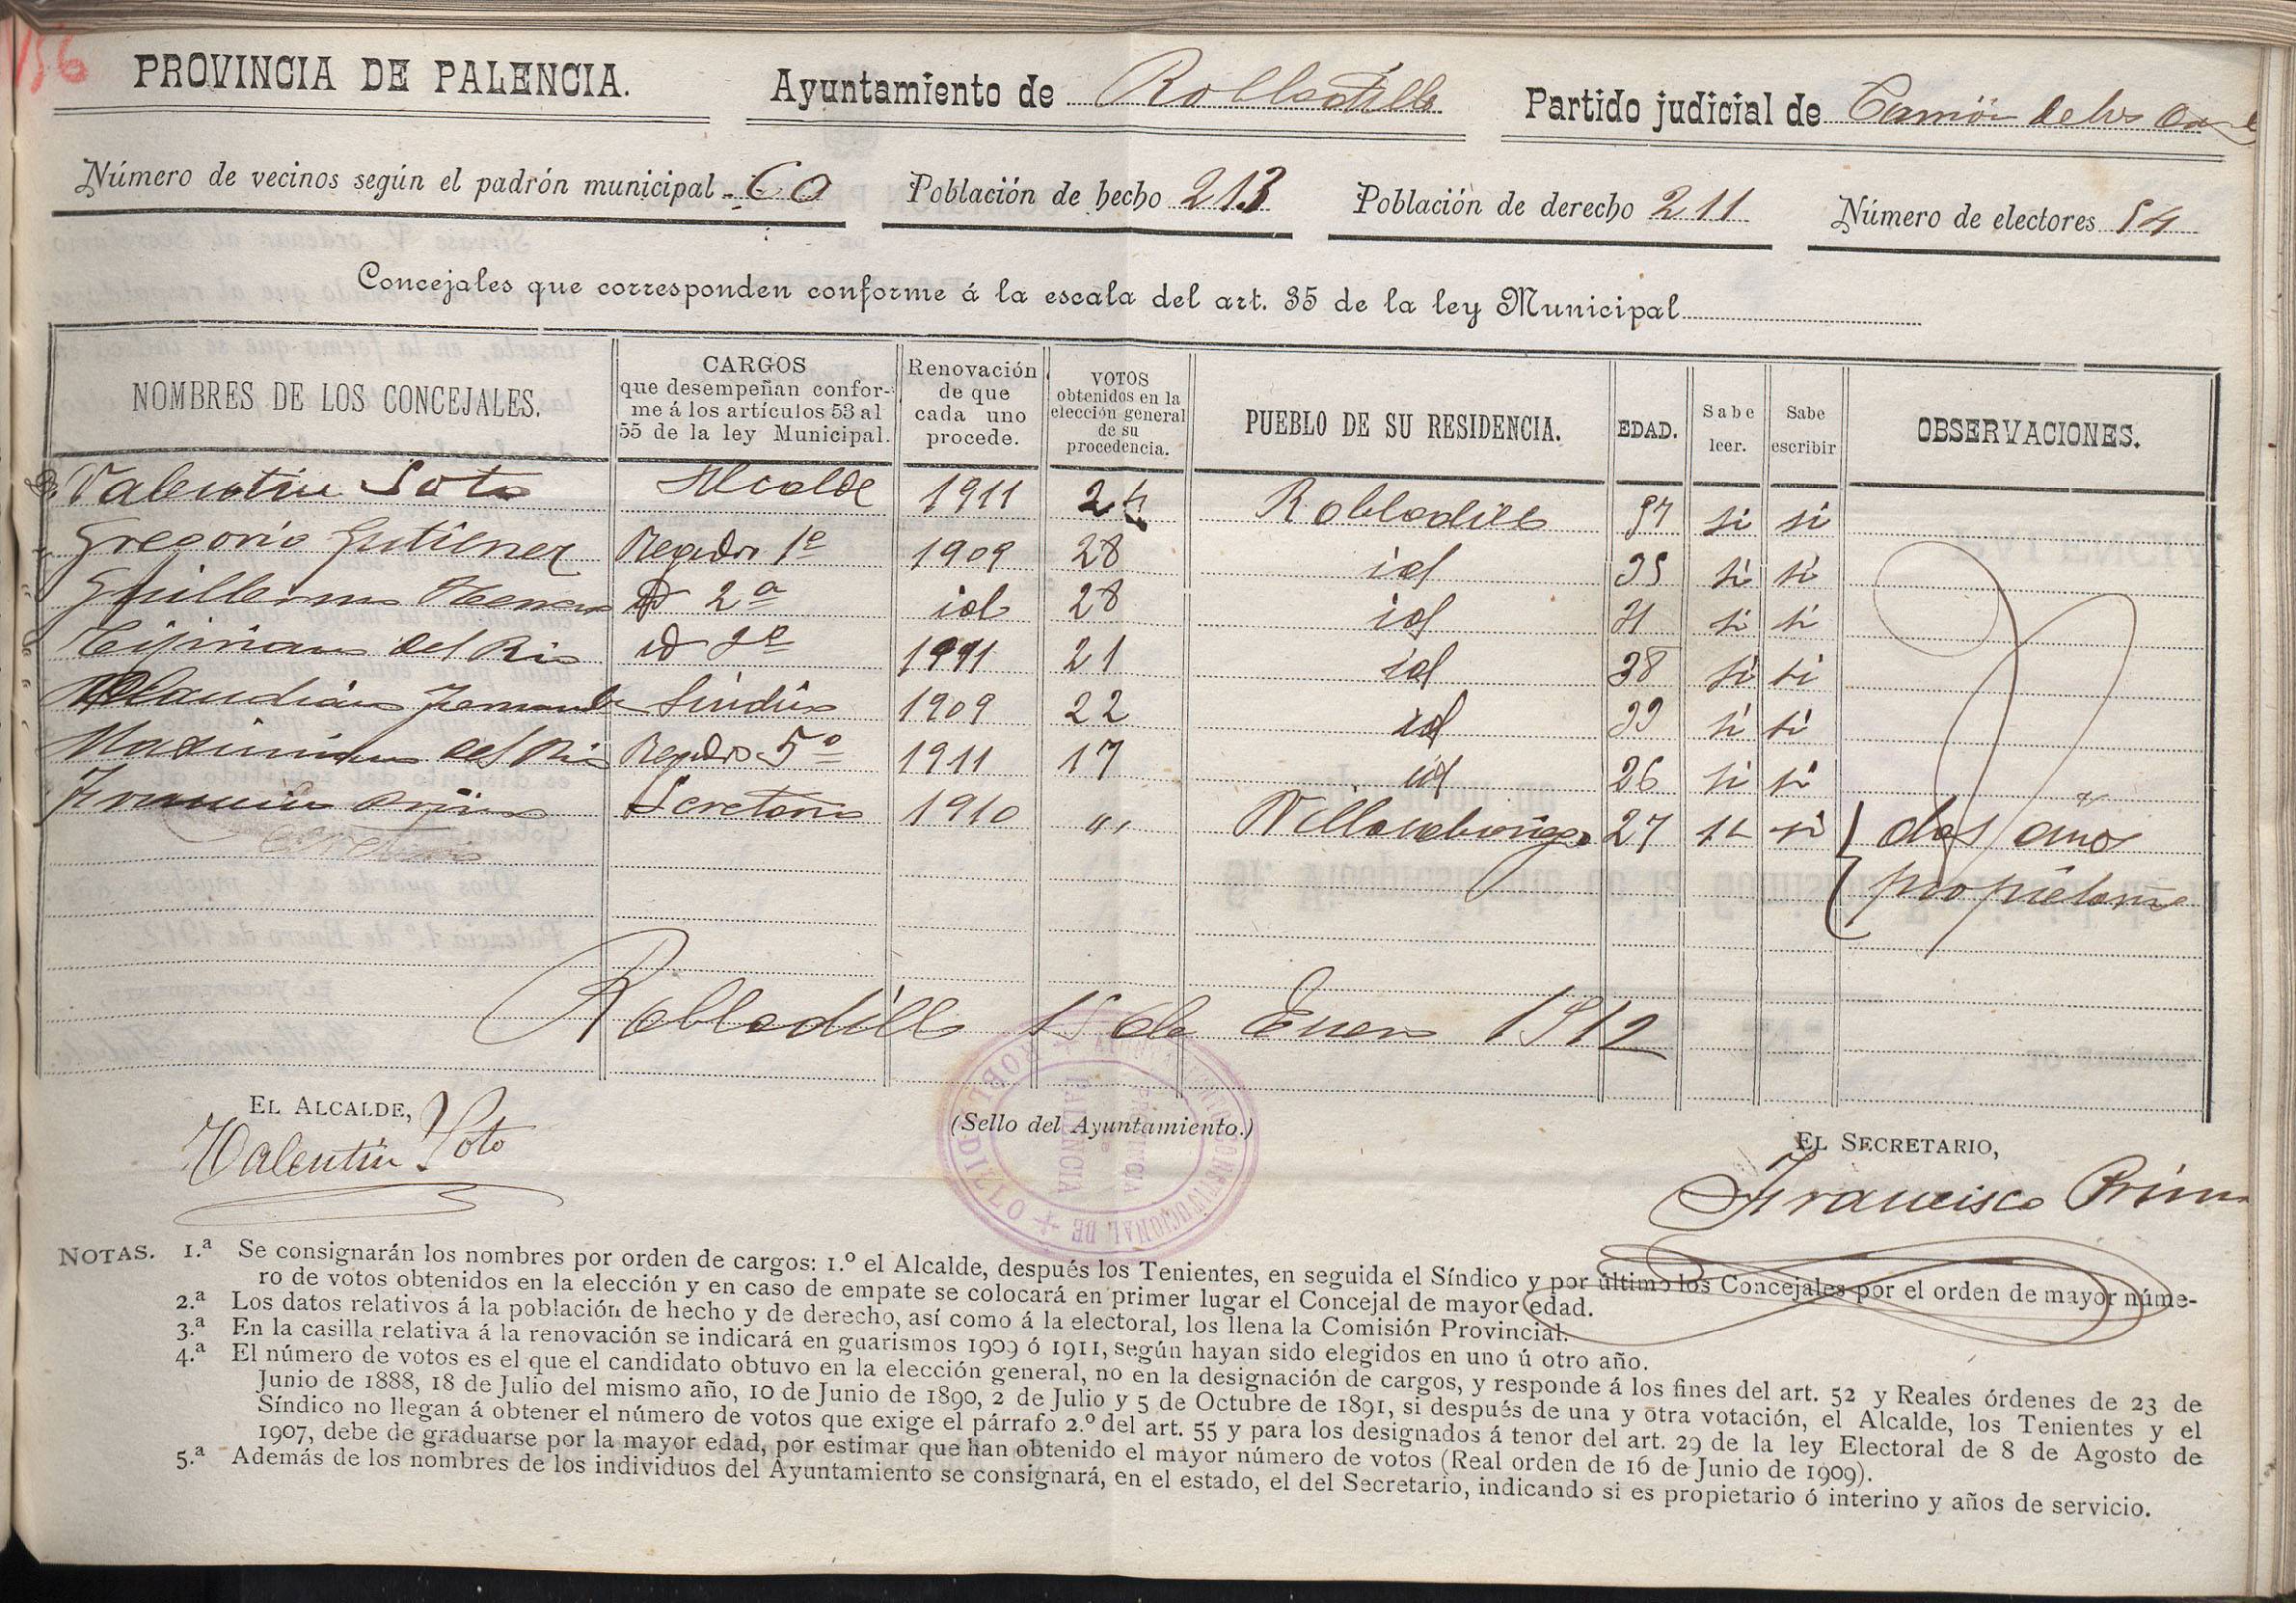 156
PROVINCIA DE PALENCIA. Ayuntamiento de Robladillo Partido judicial de Carrión de los
Número de vecinos según el padrón municipal 60 Población de hecho 213 Población de derecho 211 Número de electores 54
Concejales que corresponden conforme á la escala del art. 35 de la ley Municipal
NOMBRES DE LOS CONCEJALES. CARGOS que desempeñan confor-me á los artículos 53 al 55 de la ley Municipal. Renovación de que cada uno procede. VOTOS obtenidos en la elección general de su procedencia. PUEBLO DE SU RESIDENCIA. EDAD. Sabe leer. Sabe escribir OBSERVACIONES.
Valentin Soto Alcalde 1911 Robladillo si si
Gregorio Gutierrez Regidor 1º 1909 28 id 35 si si
Guillermo id 2º id 28 id 31 si si
Cipriano del Rio id 1911 21 id 38 si si
Claudiano Fernande Sindico 1909 22 id 39 si si
Maximiano del Rio Regidor 5º 1911 17 id 26 si si
Francisco Prieto Secretario 1910 " Villanueva 27 si si dos años
propietario
Robladillo 15 de Enero 1912
EL ALCALDE,
Valentin Soto
(Sello del Ayuntamiento.)
CONSTITUCIONAL DE ROBLADILLO
PROVINCIA DE PALENCIA
EL SECRETARIO,
Francisco
NOTAS. 1.ª Se consignarán los nombres por orden de cargos: 1.º el Alcalde, después los Tenientes, en seguida el Síndico y por último los Concejales por el orden de mayor núme-
ro de votos obtenidos en la elección y en caso de empate se colocará en primer lugar el Concejal de mayor edad.
2.ª Los datos relativos á la población de hecho y de derecho, así como á la electoral, los llena la Comisión Provincial.
3.ª En la casilla relativa á la renovación se indicará en guarismos 1909 ó 1911, según hayan sido elegidos en uno ú otro año.
4.ª El número de votos es el que el candidato obtuvo en la elección general, no en la designación de cargos, y responde á los fines del art. 52 y Reales órdenes de 23 de
Junio de 1888, 18 de Julio del mismo año, 10 de Junio de 1890, 2 de Julio y 5 de Octubre de 1891, si después de una y otra votación, el Alcalde, los Tenientes y el
Síndico no llegan á obtener el número de votos que exige el párrafo 2.º del art. 55 y para los designados á tenor del art. 29 de la ley Electoral de 8 de Agosto de
1907, debe de graduarse por la mayor edad, por estimar que han obtenido el mayor número de votos (Real orden de 16 de Junio de 1909).
5.ª Además de los nombres de los individuos del Ayuntamiento se consignará, en el estado, el del Secretario, indicando si es propietario ó interino y años de servicio.